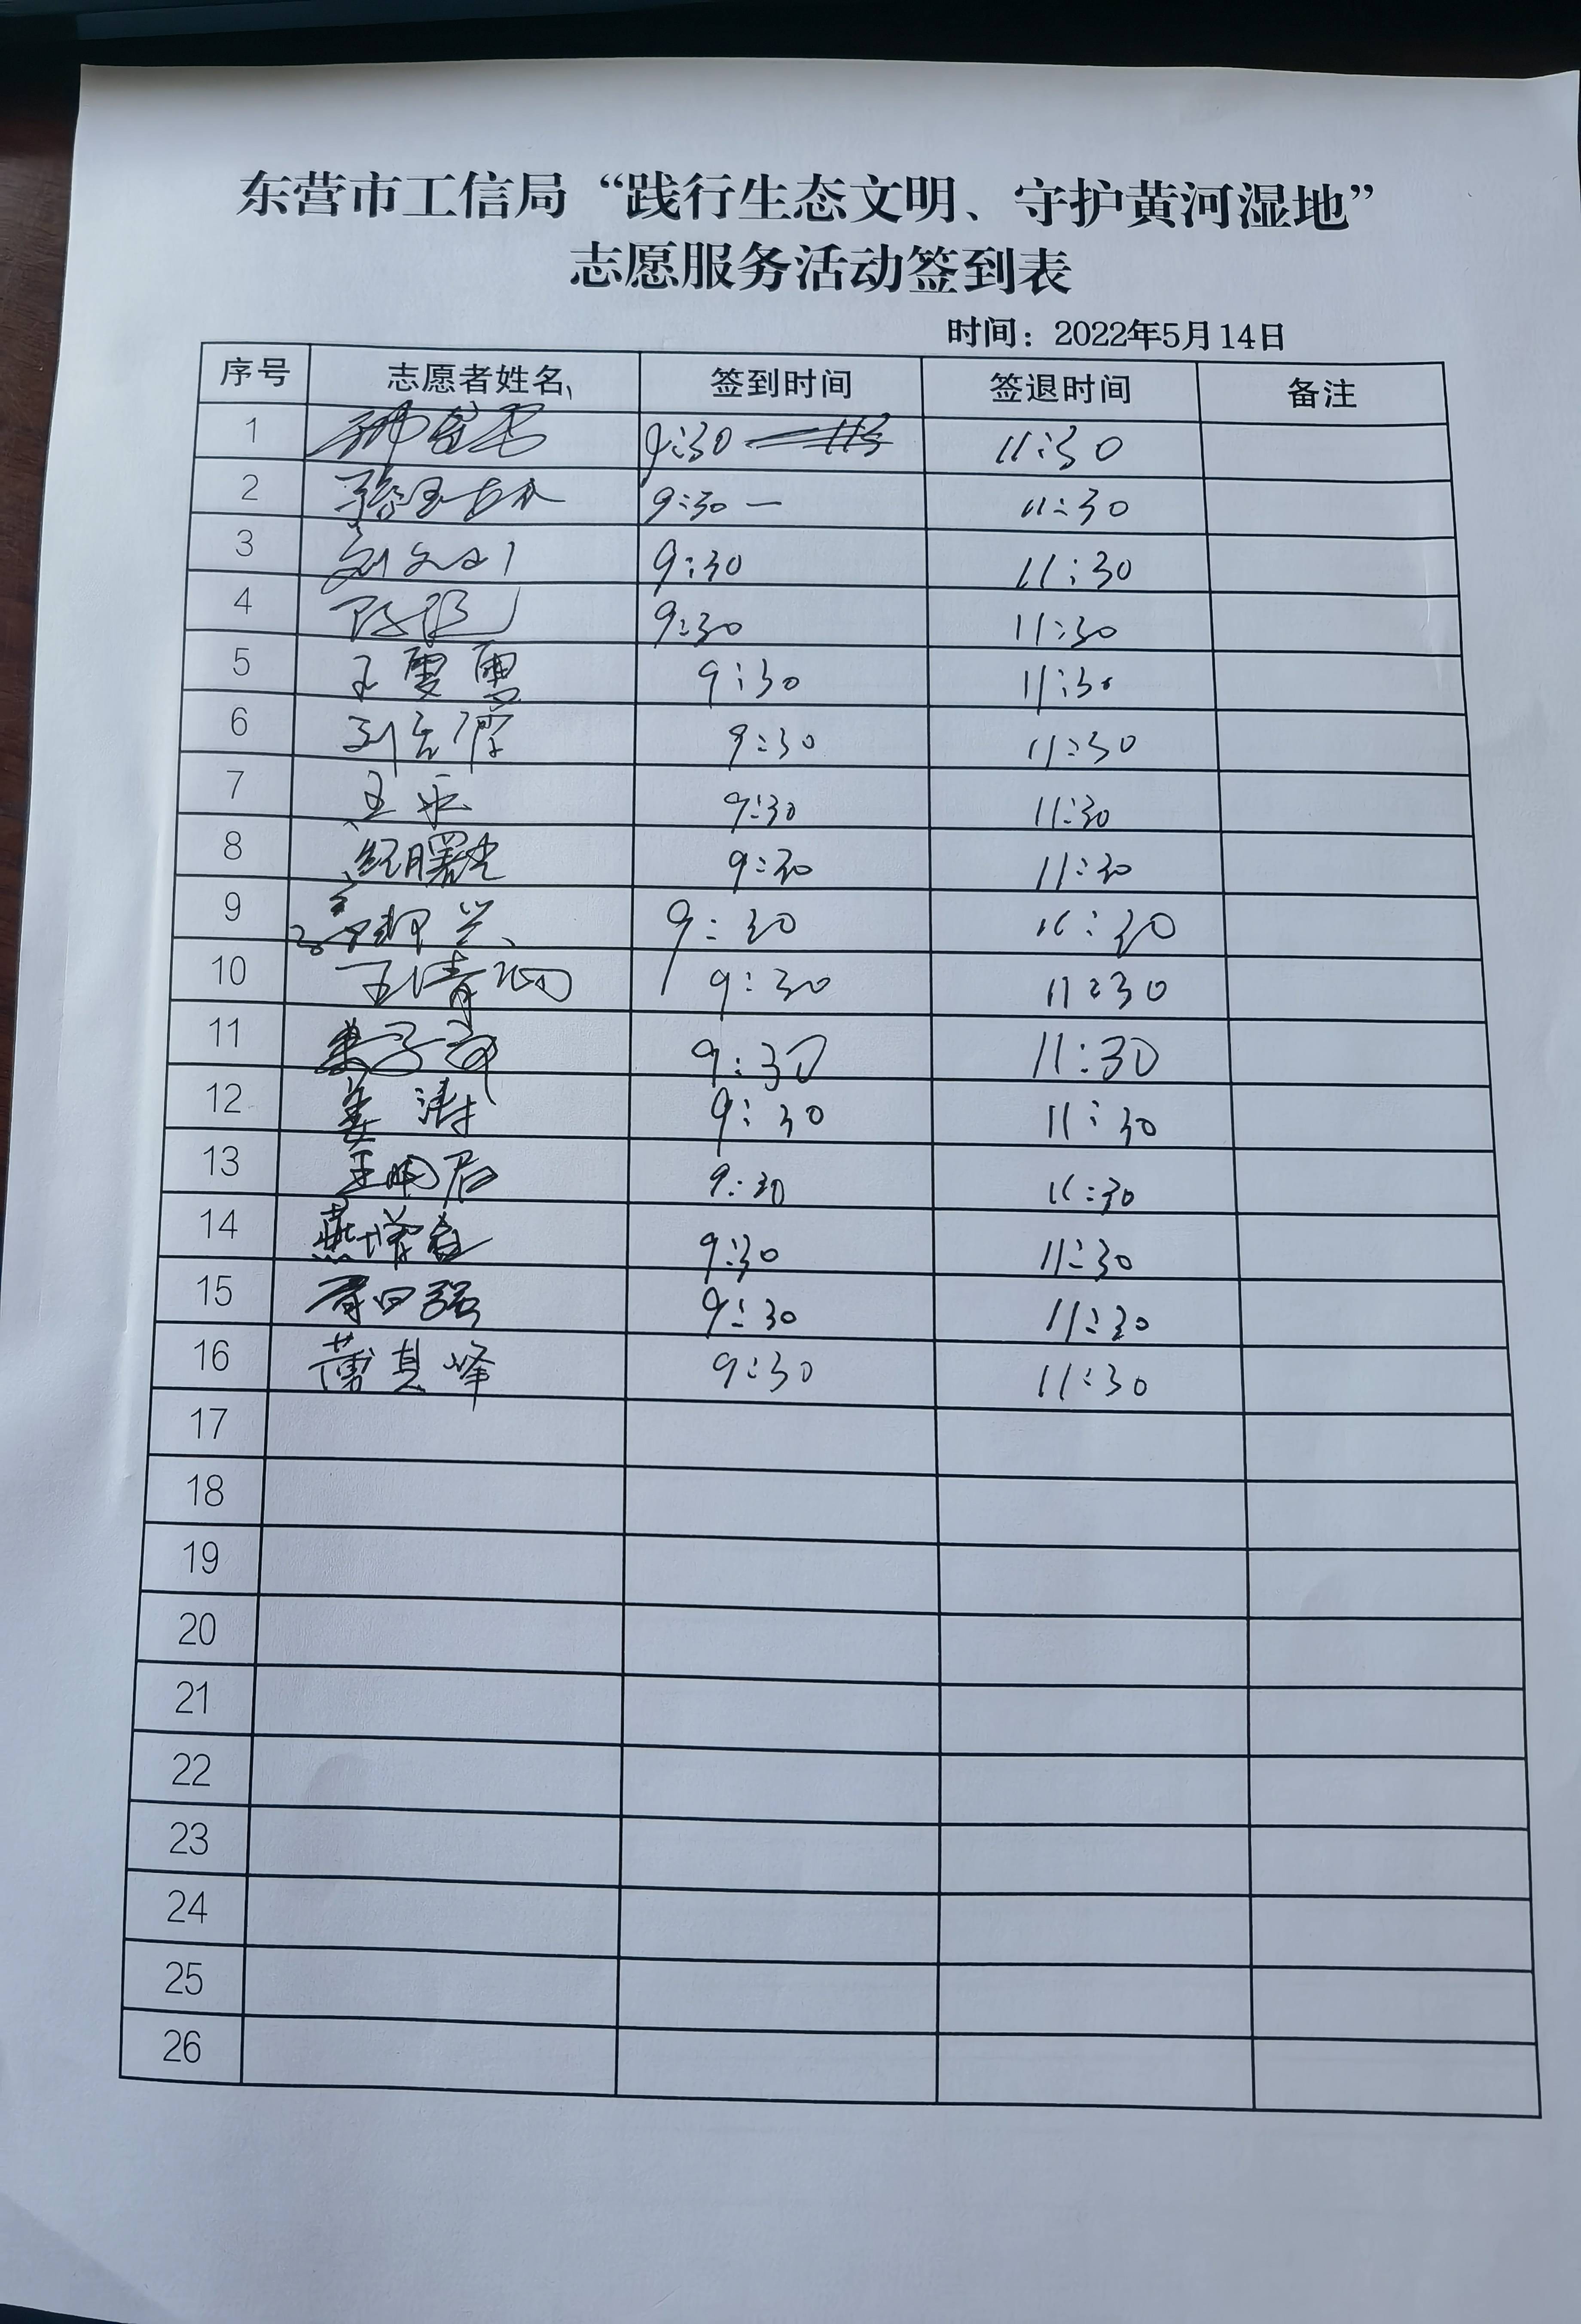 东营市工信局“践行生态文明、守护黄河湿地”
志愿服务活动签到表
时间：2022年5月14日
序号 志愿者姓名 签到时间 签退时间 备注
1 9:30 11:30
2 9:30 — 11:30
3 9:30 11:30
4 9:30 11:30
5 王雯雯 9:30 11:30
6 9:30 11:30
7 9:30 11:30
8 9:30 11:30
9 9:30 11:30
10 9:30 11:30
11 9:30 11:30
12 姜涛 9:30 11:30
13 9:30 11:30
14 燕增春 9:30 11:30
15 9:30 11:30
16 薄其峰 9:30 11:30
17
18
19
20
21
22
23
24
25
26